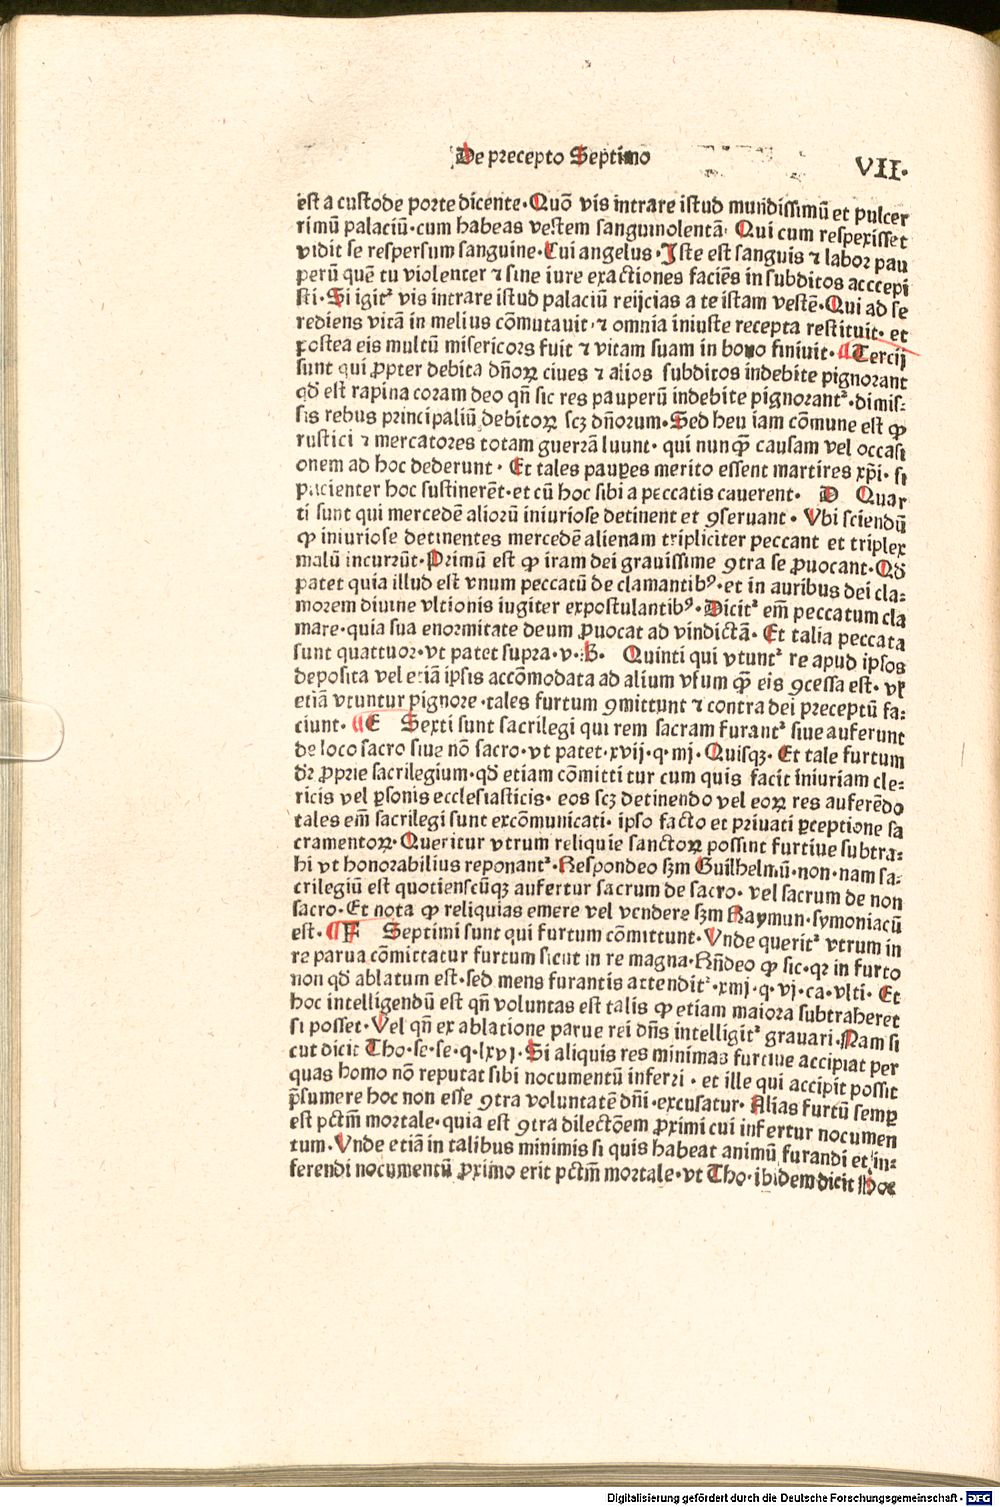 De precepto Septimo
VII·
est a custode porte dicente· Quō vis intrare istud mundissimū et pulcer
rimū palaciū·cum habeas vestem sanguinolentā· Qui cum respexisset
vidit se respersum sanguine·Cui angelus·Iste est sanguis ⁊ labor pau
perū quē tu violenter ⁊ sine iure exactiones faciēs in subditos acccepi
sti·Si igitᷣ vis intrare istud palaciū reijcias a te istam vestē·Qui ad se
rediens vitā in melius cōmutauit·⁊ omnia iniuste recepta restituit· et
postea eis multū misericors fuit ⁊ vitam suam in bono finiuit· ¶Tercij
sunt qui ꝓpter debita dn̄oꝝ ciues ⁊ alios subditos indebite pignorant
qd̄ est rapina coram deo qn̄ sic res pauperū indebite pignorantᷣ·dimis⸗
sis rebus principaliū debitoꝝ scꝫ dn̄orum·Sed heu iam cōmune est ꝙ
rustici ⁊ mercatores totam guerrā luunt· qui nunꝙ̄ causam vel occasi
onem ad hoc dederunt· Et tales pauꝑes merito essent martires xp̄i· si
pacienter hoc sustinerēt·et cū hoc sibi a peccatis cauerent· D Quar
ti sunt qui mercedē aliorū iniuriose detinent et ꝯseruant· Vbi sciendū
ꝙ iniuriose detinentes mercedē alienam tripliciter peccant et triplex
malū incurrūt·Primū est ꝙ iram dei grauissime ꝯtra se ꝓuocant·Qd̄
patet quia illud est vnum peccatū de clamantibꝰ·et in auribus dei cla⸗
morem diuine vltionis iugiter expostulantibꝰ·Dicitᷣ em̄ peccatum cla
mare·quia sua enormitate deum ꝓuocat ad vindictā· Et talia peccata
sunt quattuor·vt patet supra·v·B· Quinti qui vtuntᷣ re apud ipsos
deposita vel etiā ipsis accōmodata ad alium vsum ꝙ̄ eis ꝯcessa est· vl̓
etiā vtuntur pignore·tales furtum ꝯmittunt ⁊ contra dei preceptū fa⸗
ciunt· ¶E Sexti sunt sacrilegi qui rem sacram furantᷣ siue auferunt
de loco sacro siue nō sacro·vt patet·xvij·q·iiij·Quisqꝫ· Et tale furtum
dr̄ ꝓprie sacrilegium·qd̄ etiam cōmitti tur cum quis facit iniuriam cle⸗
ricis vel ꝑsonis ecclesiasticis· eos scꝫ detinendo vel eoꝝ res auferēdo
tales em̄ sacrilegi sunt excōmunicati· ipso facto et priuati ꝑceptione sa
cramentoꝝ·Queritur vtrum reliquie sanctoꝝ possint furtiue subtra⸗
hi vt honorabilius reponantᷣ·Respondeo sꝫm Guilhelmū·non·nam sa⸗
crilegiū est quotienscūqꝫ aufertur sacrum de sacro· vel sacrum de non
sacro·Et nota ꝙ reliquias emere vel vendere sꝫm Raymun·symoniacū
est· ¶F Septimi sunt qui furtum cōmittunt·Vnde queritᷣ vtrum in
re parua cōmittatur furtum sicut in re magna·Rn̄deo ꝙ sic·qꝛ in furto
non qd̄ ablatum est·sed mens furantis attenditᷣ·xiiij·q·vj·ca·vlti· Et
hoc intelligendū est qn̄ voluntas est talis ꝙ etiam maiora subtraheret
si posset·Vel qn̄ ex ablatione parue rei dn̄s intelligitᷣ grauari·Nam si
cut dicit Tho·se·se·q·lxvj·Si aliquis res minimas furtiue accipiat per
quas homo nō reputat sibi nocumentū inferri· et ille qui accipit possit
p̄sumere hoc non esse ꝯtra voluntatē dn̄i·excusatur· Alias furtū semꝑ
est pctm̄ mortale·quia est ꝯtra dilectōem ꝓximi cui infertur nocumen
tum·Vnde etiā in talibus minimis si quis habeat animū furandi et in⸗
ferendi nocumentū ꝓximo erit pctm̄ mortale·vt Tho·ibidem dicit Hoc
Digitalisierung gefördert durch die Deutsche Forschungsgemeinschaft · DFG